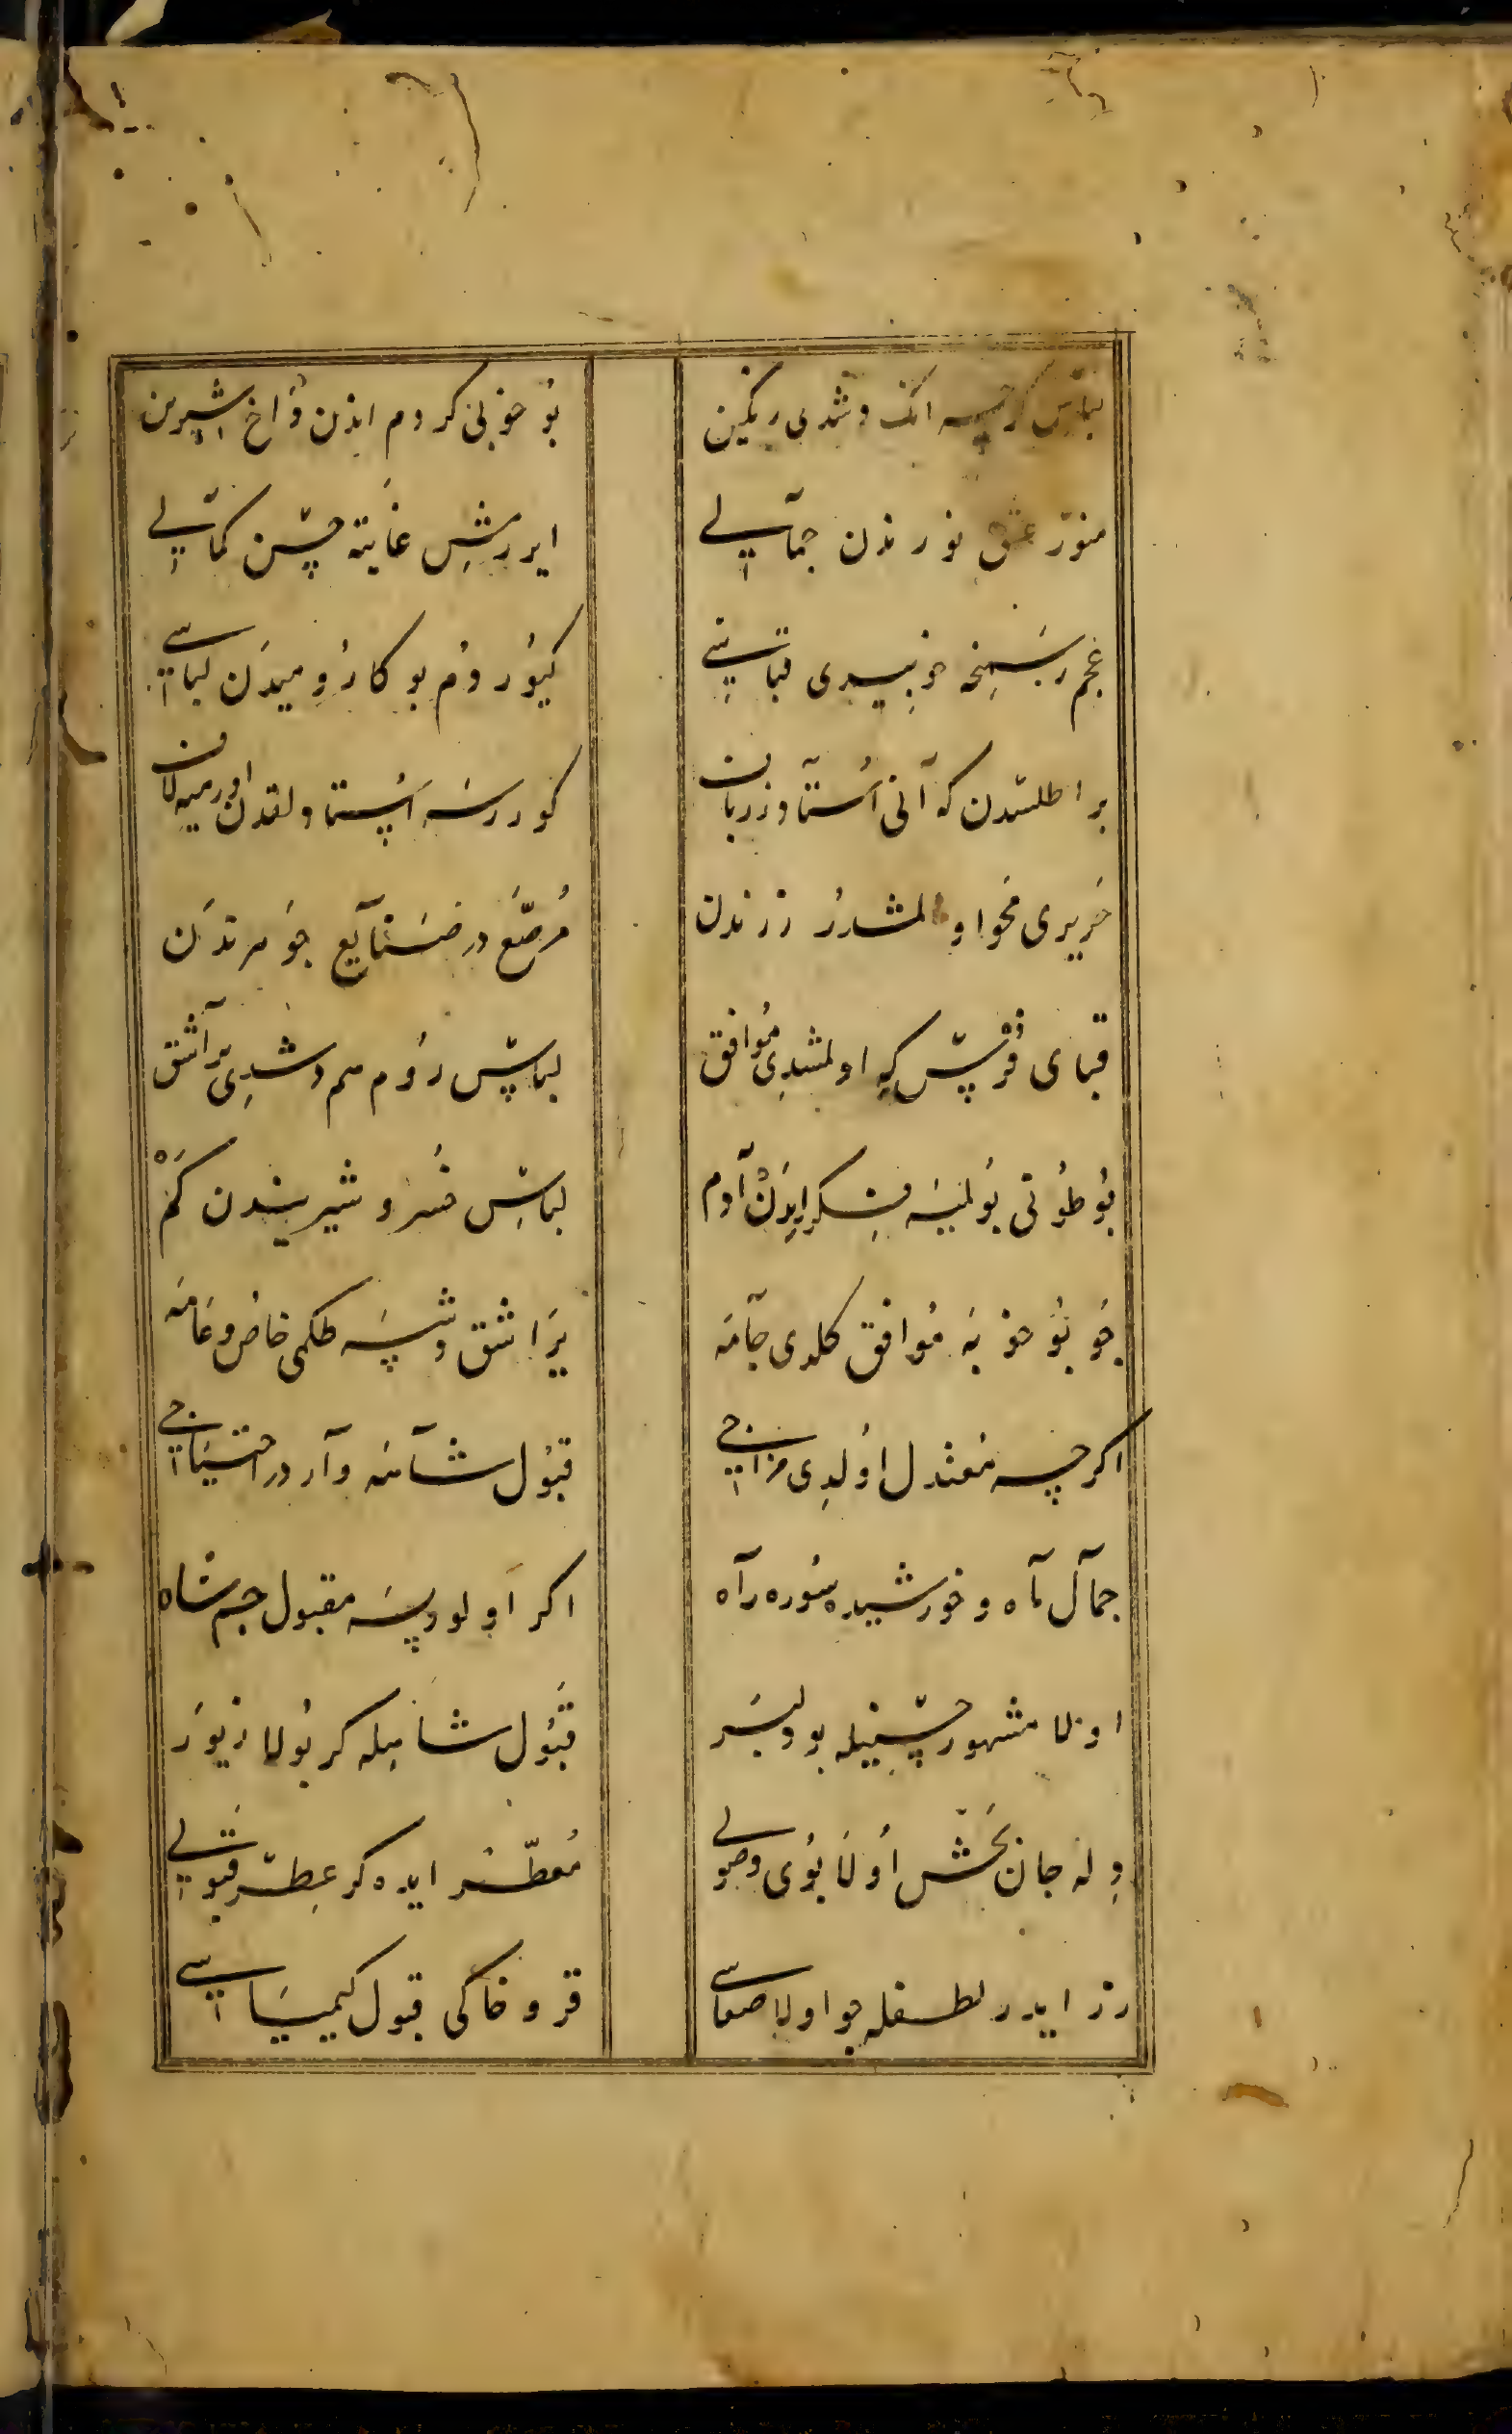 لباس کرچه انک دشدی رنگین
بو خوبی کردم ایدن دُاخ شیرین
منوّر عشق نورندن جمالی
ایررمش غایته حسن کمالی
عجم رسمنجه خوبیدی قباسی
کیوردوم بو کا رومیدن لباسی
بر اطلسدن که آنی استاد زربان
کوررسه اُستاد لقدن اورمیه لان
حریری محو اولمشدر زرندن
مُرصّع در صَنایع جوهرندن
قبای فُرس که اولمشدی مُوافق
لباس رُوم هم دشدی یراشق
بُو طُوتی بُولیسه فکر ایدن آدم
لباس خسرو شیریندن کم
چو بُو خوبه مُوافق کلدی جامه
یراشق دشسه طکمی خاص و عامه
اکرچه مُعتدل اُولدی مزاجی
قبُول شامه وآردر احتیاجی
جمال ماه و خورشیده سُوره رآه
اکر اولودسه مقبول جم شاه
اولا مشهور حسنیله بو دلبر
قبُول شامله کر بُولا زیور
وله جان بَخش اُولا بُوی وصولی
مُعطّر ایده کر عِطر قبولی
زر ایدر لطفله چو اولا صفاسی
قرو خاکی قبول کیمیاسی